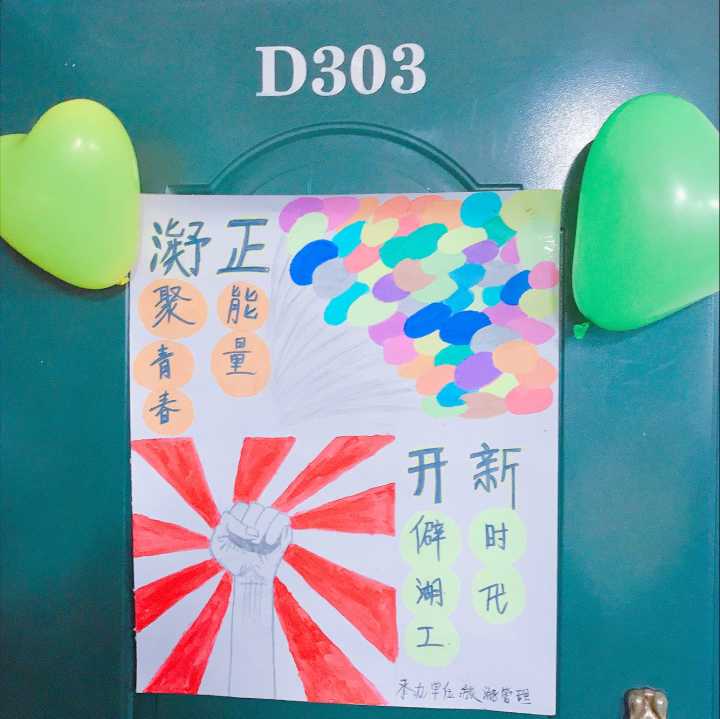 凝聚青春
正能量
开僻湖工
新时代
承办单位 旅游管理
D303